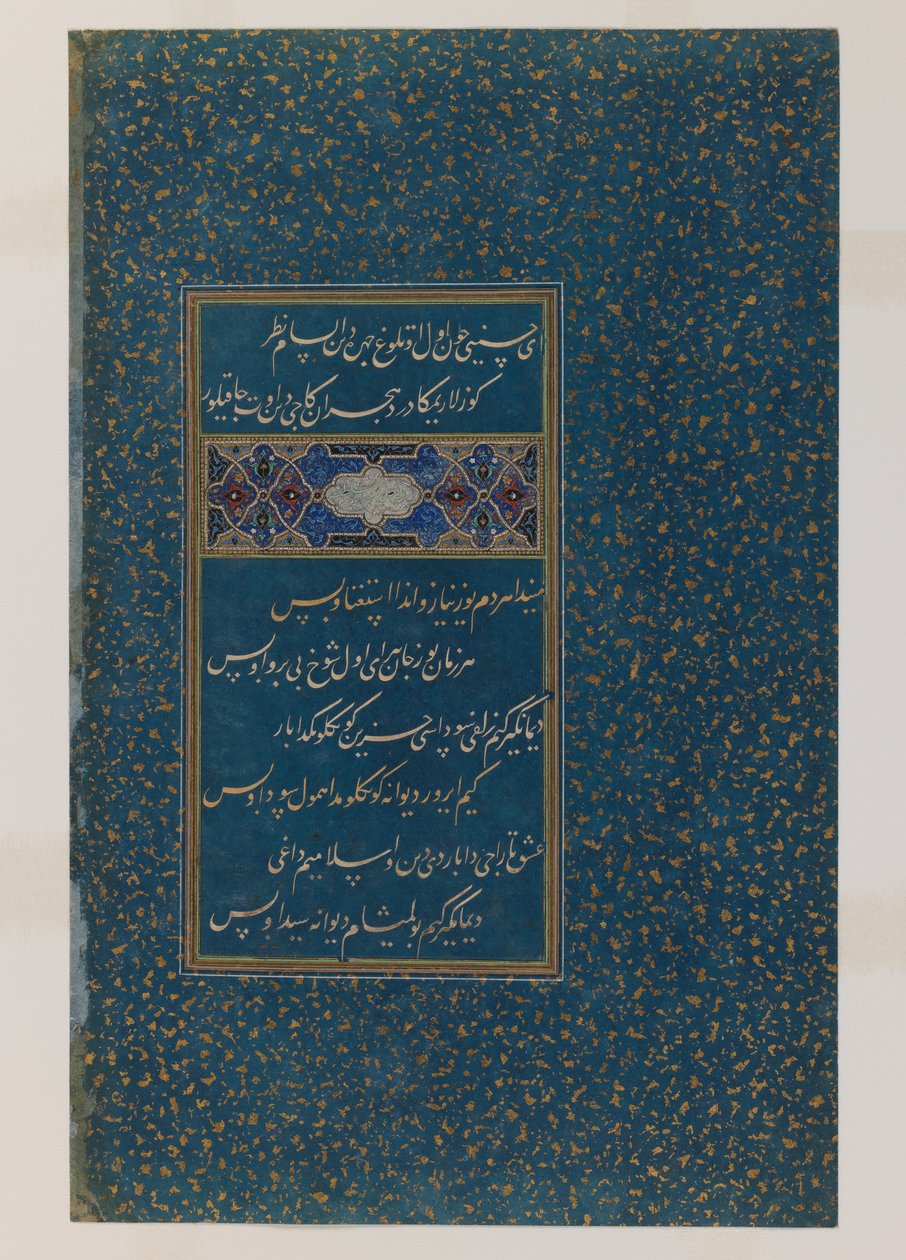 ای حسینی چون اول اوتلوغ چهره دن السام نظر
کوزلاریمکا درد هجران کاجی دین اوت جاقیلور
میندا هردم یوز نیاز و اندا استغنا و بس
هر زمان یوز جان اول شوخ بی پروا و بس
دیمانکیز کیم زلفی سوداسی حزین کونکلومدا بار
کیم ایرور دیوانه کونکلومدا همول سودا و بس
عشق تاراجی دا باردی دین و اسلامیم داغی
دیمانکیز کیم بولمیشام دیوانه شیدا و بس